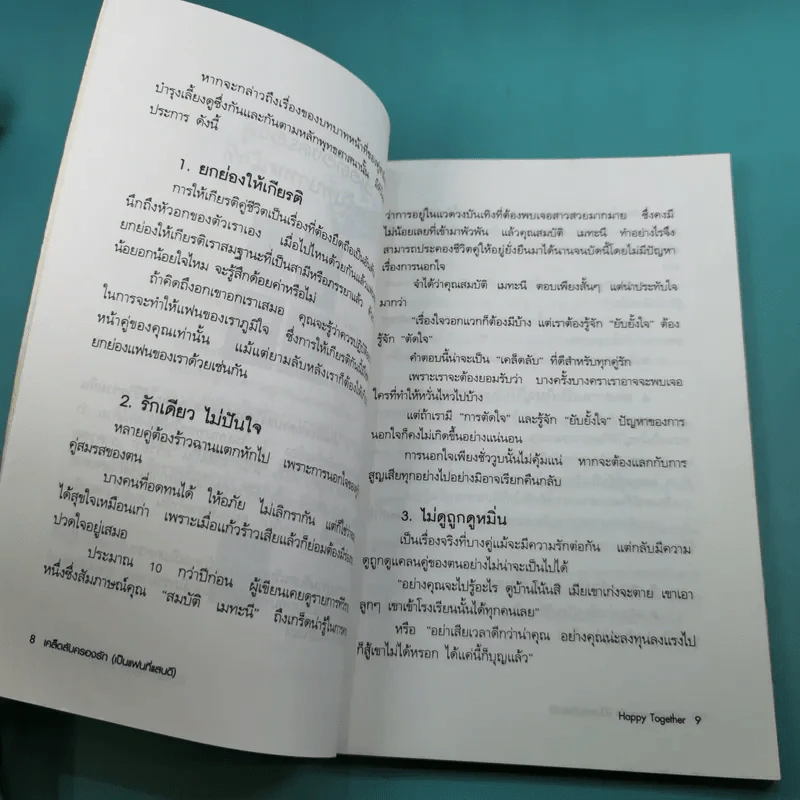 หากจะกล่าวถึงเรื่องของบทบาทหน้าที่ของ
บำรุงเลี้ยงดูซึ่งกันและกันตามหลักพุทธศาสนานั้น
ประการ ดังนี้
1. ยกย่องให้เกียรติ
การให้เกียรติคู่ชีวิตเป็นเรื่องที่ต้องยึดถือเป็น
นึกถึงหัวอกของตัวเราเอง เมื่อไปไหนด้วยกันแล้ว
ยกย่องให้เกียรติเราสมฐานะที่เป็นสามีหรือภรรยาแล้ว
น้อยอกน้อยใจไหม จะรู้สึกด้อยค่าหรือไม่
ถ้าคิดถึงอกเขาอกเราเสมอ คุณจะรู้ว่าควร
ในการจะทำให้แฟนของเราภูมิใจ ซึ่งการให้เกียรติกันนั้น
หน้าคู่ของคุณเท่านั้น แม้แต่ยามลับหลังเราก็ต้องให้
ยกย่องแฟนของเราด้วยเช่นกัน
2. รักเดียว ไม่ปันใจ
หลายคู่ต้องร้าวฉานแตกหักไป เพราะการนอกใจของ
คู่สมรสของตน
บางคนที่อดทนได้ ให้อภัย ไม่เลิกรากัน แต่ก็ใช่ว่า
ได้สุขใจเหมือนเก่า เพราะเมื่อแก้วร้าวเสียแล้วก็ย่อมต้องมี
ปวดใจอยู่เสมอ
ประมาณ 10 กว่าปีก่อน ผู้เขียนเคยดูรายการทีวี
หนึ่งซึ่งสัมภาษณ์คุณ "สมบัติ เมทะนี" ถึงเกร็ดน่ารู้ในการ
8 เคล็ดลับครองรัก (เป็นแฟนที่แสนดี)
ว่าการอยู่ในแวดวงบันเทิงที่ต้องพบเจอสาวสวยมากมาย ซึ่งคงมี
ไม่น้อยเลยที่เข้ามาพัวพัน แล้วคุณสมบัติ เมทะนี ทำอย่างไรจึง
สามารถประคองชีวิตคู่ให้อยู่ยั่งยืนมาได้นานจนบัดนี้โดยไม่มีปัญหา
เรื่องการนอกใจ
จำได้ว่าคุณสมบัติ เมทะนี ตอบเพียงสั้นๆ แต่น่าประทับใจ
มากว่า
"เรื่องใจวอกแวกก็ต้องมีบ้าง แต่เราต้องรู้จัก "ยับยั้งใจ" ต้อง
รู้จัก "ตัดใจ"
คำตอบนี้น่าจะเป็น "เคล็ดลับ" ที่ดีสำหรับทุกคู่รัก
เพราะเราจะต้องยอมรับว่า บางครั้งบางคราเราอาจจะพบเจอ
ใครที่ทำให้หวั่นไหวไปบ้าง
แต่ถ้าเรามี "การตัดใจ" และรู้จัก "ยับยั้งใจ" ปัญหาของการ
นอกใจก็คงไม่เกิดขึ้นอย่างแน่นอน
การนอกใจเพียงชั่ววูบนั้นไม่คุ้มแน่ หากจะต้องแลกกับการ
สูญเสียทุกอย่างไปอย่างมิอาจเรียกคืนกลับ
3. ไม่ดูถูกดูหมิ่น
เป็นเรื่องจริงที่บางคู่แม้จะมีความรักต่อกัน แต่กลับมีความ
ดูถูกดูแคลนคู่ของตนอย่างไม่น่าจะเป็นไปได้
"อย่างคุณจะไปรู้อะไร ดูบ้านโน้นสิ เมียเขาเก่งจะตาย เขาเอา
ลูกๆ เขาเข้าโรงเรียนนั้นได้ทุกคนเลย"
หรือ "อย่าเสียเวลาดีกว่าน่าคุณ อย่างคุณน่ะลงทุนลงแรงไป
ก็สู้เขาไม่ได้หรอก ได้แค่นี้ก็บุญแล้ว"
Happy Together 9